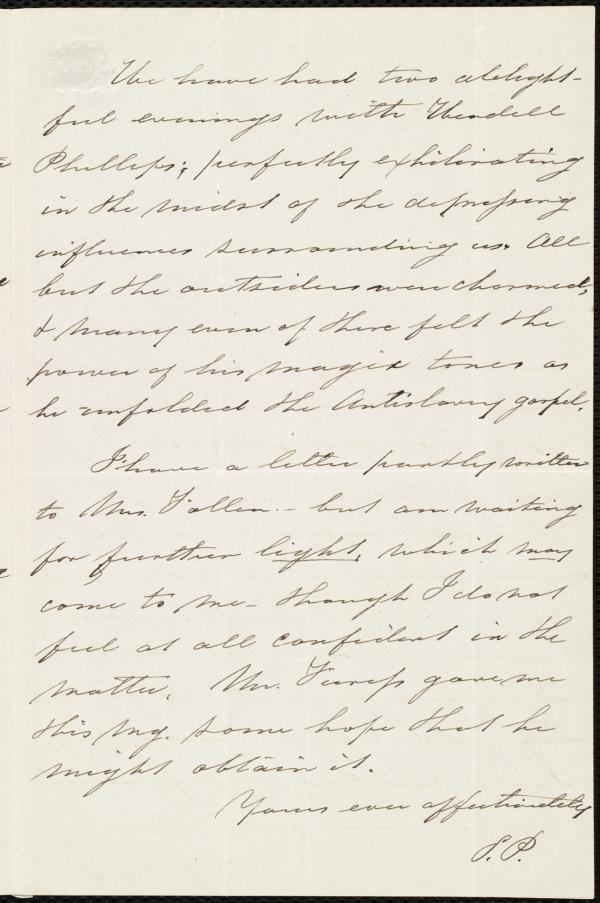 We have had two delight-
ful evenings with Wendell
Phillips; perfectly exhilirating
in the midst of the depressing
influences surrounding us. All
but the outsiders were charmed,
& many even of there felt the
power of his magic tones as
he unfolded the Antislavery gospel.
I have a letter partly written
to Mrs. Follen — but am waiting
for further light, which may
come to me — though I do not
feel at all confident in the
matter. Mr. Furness gave me
this mg. some hope that he
might obtain it.
Yours ever affectionately
S. P.